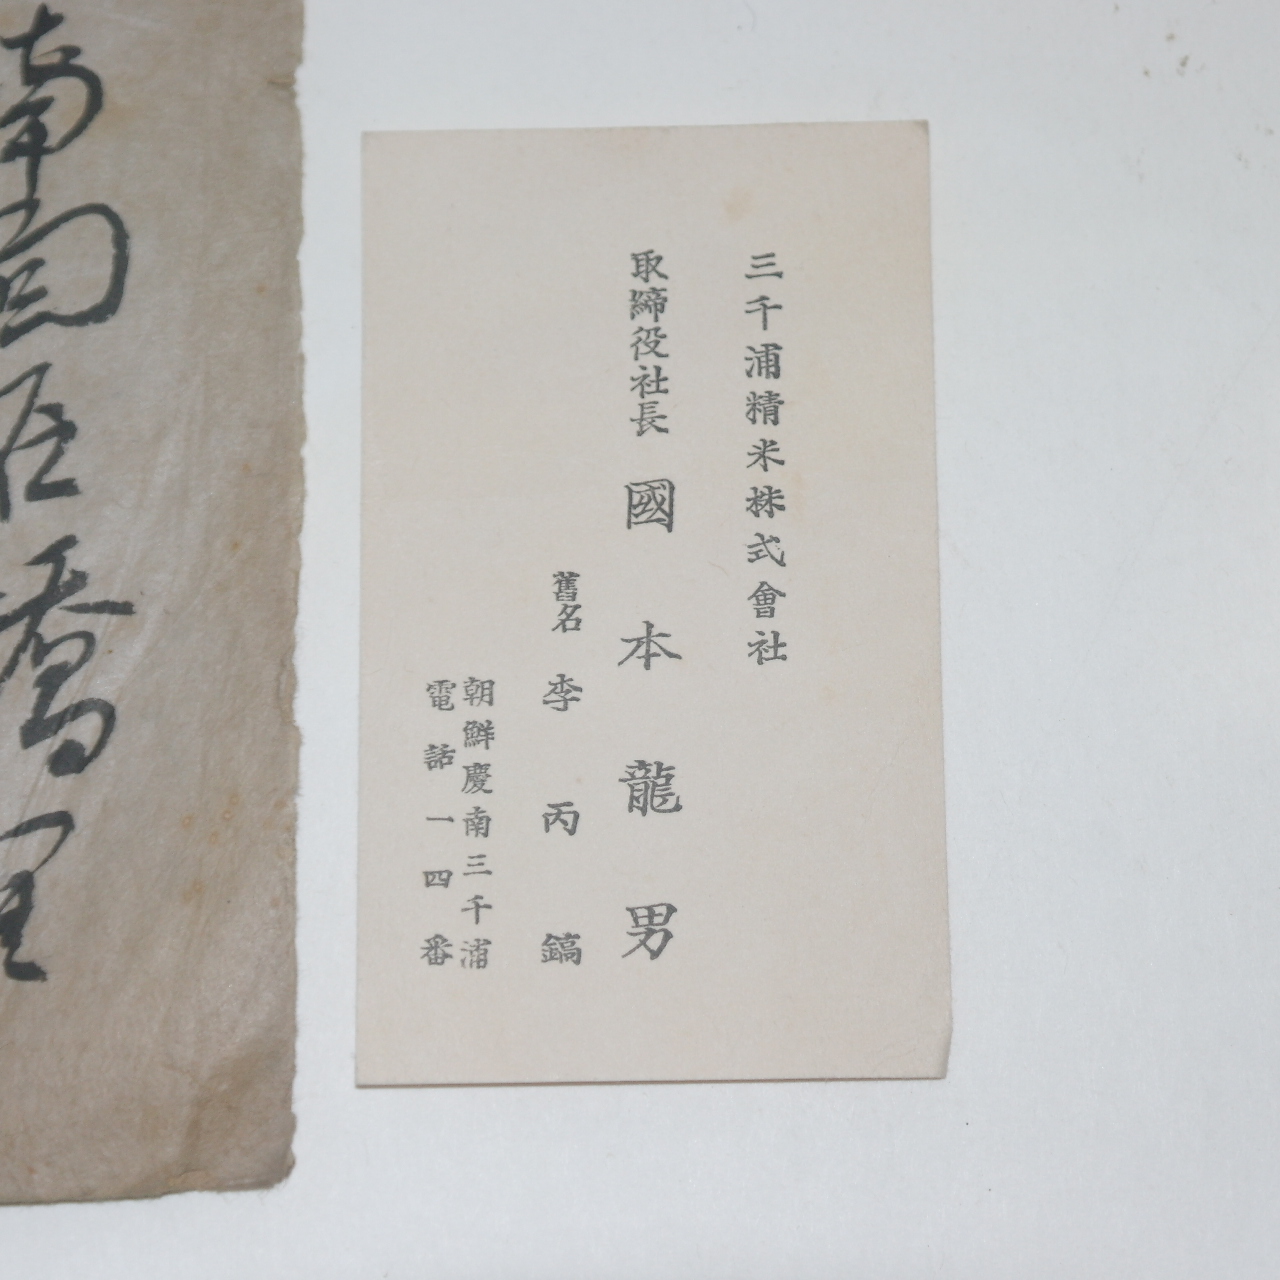 三千浦精米株式會社
取締役社長 國本龍男
舊名 李丙鎬
朝鮮慶南三千浦
電話一四番